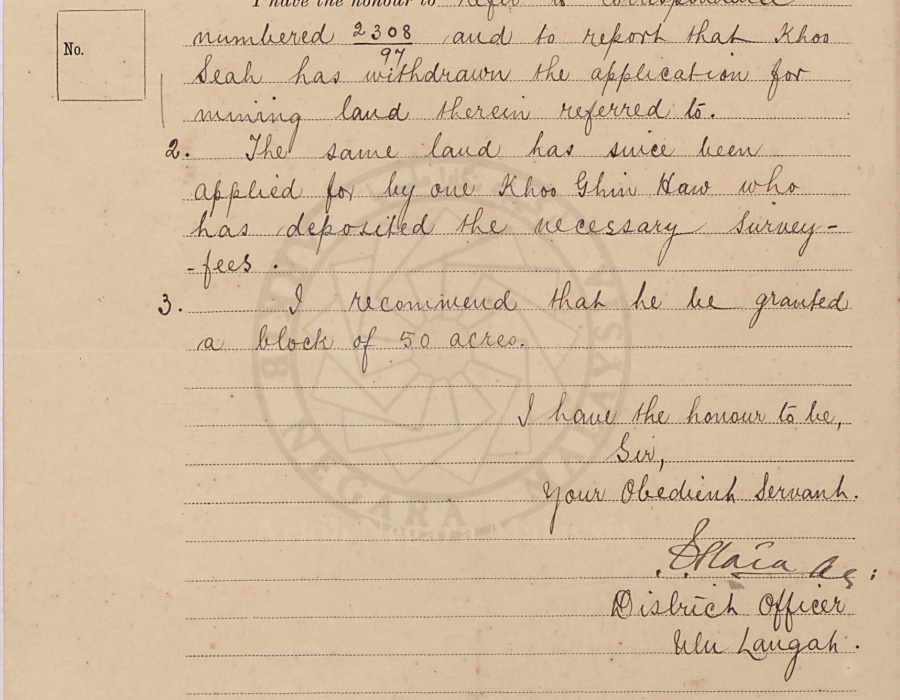 I have the honour to refer to correspondence
No.
numbered 2308/97 and to report that Khoo
Seah has withdrawn the application for
mining land therein referred to.
2. The same land has since been
applied for by one Khoo Ghin Haw who
has deposited the necessary survey-
-fees.
3. I recommend that he be granted
a block of 50 acres.
I have the honour to be,
Sir,
Your Obedient Servant.
Ag:
District Officer
Ulu Langat.
ARKIB NEGARA MALAYSIA